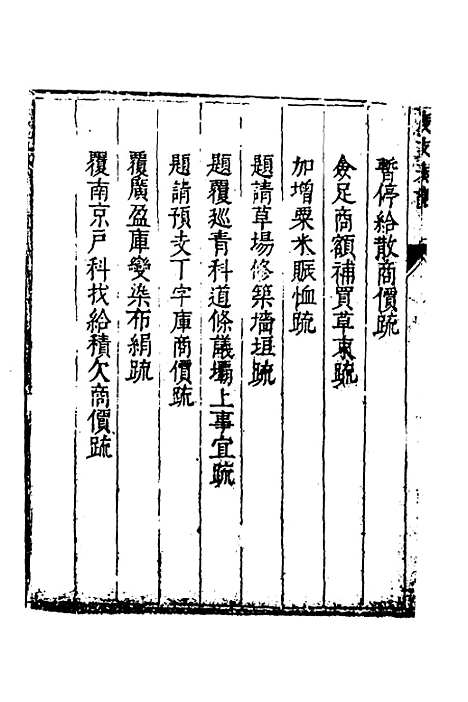 暫停給散商價疏
僉足商額補買草束疏
加增粟米賑恤疏
題請草場修築墻垣疏
題覆巡青科道條議壩上事宜疏
題請預支丁字庫商價疏
覆廣盈庫變染布絹疏
覆南京戸科找給積欠商價疏